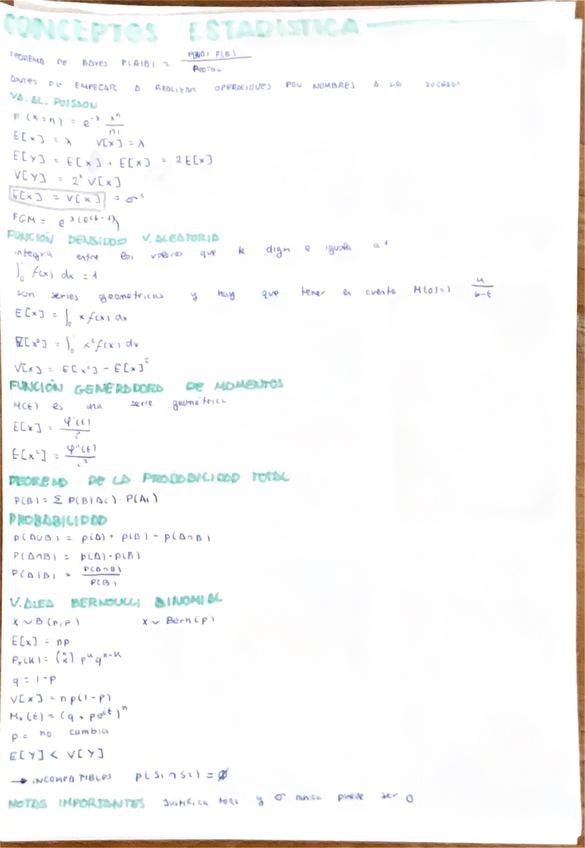 CONCEPTOS ESTADÍSTICA
TEOREMA DE BAYES P(A|B) = P(B) / PTOTAL
ANTES DE EMPEZAR A REALIZAR OPERACIONES PON NOMBRES A LO
V.A. AL. POISSON
P(X=n) = e^-λ λ^n / n!
E[X] = λ V[X] = λ
E[Y] = E[X] + E[X] = 2E[X]
V[Y] = 2² V[X]
E[X] = V[X] = σ²
FGM = e^λ(e^(it)-1)
FUNCIÓN DENSIDAD V.ALEATORIA
integra entre los valores que te digan e iguala a 1
∫₀ f(x) dx = 1
son series geométricas y hay que tener en cuenta M(0)=1
E[X] = ∫₀ x f(x) dx
E[X²] = ∫₀ x² f(x) dx
V[X] = E[X²] - E[X]²
FUNCIÓN GENERADORA DE MOMENTOS
M(t) es una serie geométrica
E[X] = φ'(t) / i
E[X²] = φ''(t) / i²
TEOREMA DE LA PROBABILIDAD TOTAL
P(B) = Σ P(B|Ai) · P(Ai)
PROBABILIDAD
P(A∪B) = P(A) + P(B) - P(A∩B)
P(A∩B) = P(A) · P(B)
P(A|B) = P(A∩B) / P(B)
V.ALEA BERNOULLI BINOMIAL
X ~ B(n,p) X ~ Bern(p)
E[X] = np
Px(k) = (n k) p^k q^n-k
q = 1-p
V[X] = np(1-p)
Mx(t) = (q + pe^it)^n
p = no cambia
E[Y] < V[Y]
→ INCOMPATIBLES P(S1 ∩ S2) = ∅
NOTAS IMPORTANTES y σ nunca puede ser 0